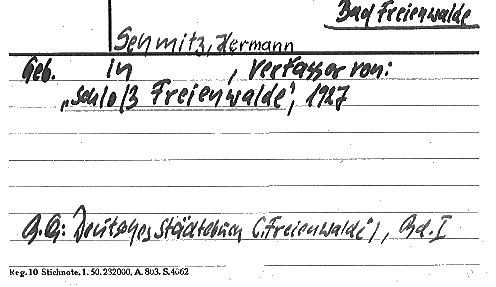 Bad Freienwalde
Schmitz, Hermann
Geb. in , Verfasser von:
„Schloß Freienwalde", 1927
Deutsches Städtebuch („Freienwalde"), Bd. I
Reg. 10 Stichnote, I. 50. 232000, A. 803. S. 4062